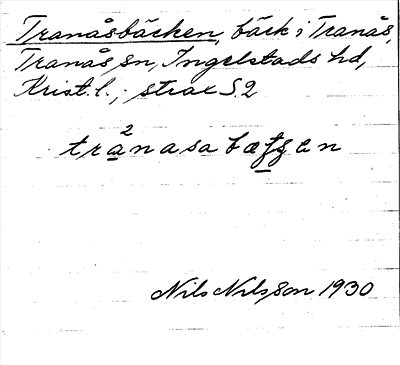 Tranåsbäcken, bäck i Tranås,
Tranås sn, Ingelstads hd,
Krist. l.; strax S. 2
tra²nasabætsen
Nils Nilsson 1930